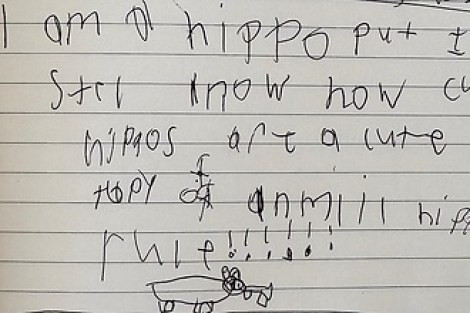 I am a hippo put I
Stel know how cu
hippos are a cute
topy of anmill hip
rule!!!!!!!